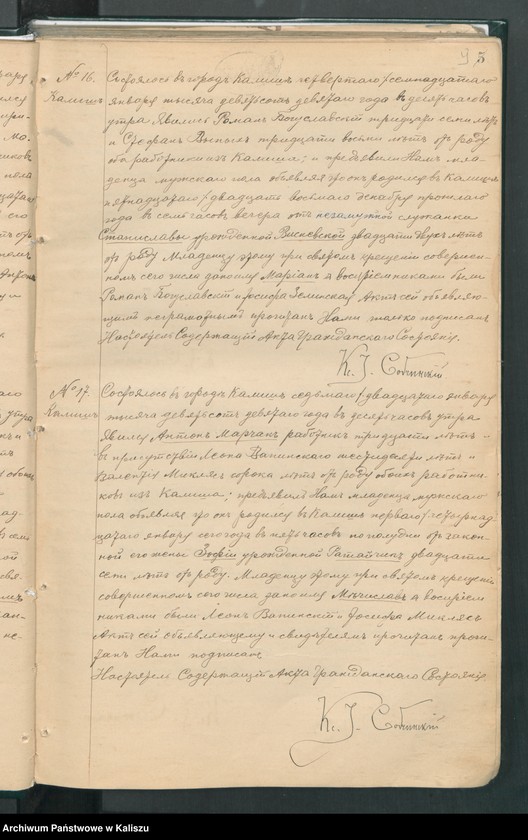 5
№ 16.
Калишъ
Состоялось въ городѣ Калишѣ четвертаго /семнадцатаго
января тысяча девятьсотъ девятаго года въ десять часовъ
утра. Явились Романъ Богуславскій тридцати семи лѣтъ
и Стефанъ тридцати восьми лѣтъ отъ роду
оба работники изъ Калиша; и предъявили Намъ мла-
денца мужскаго пола объявляя что онъ родился въ Калишѣ
/ двадцать восьмаго декабря прошлаго
года въ семь часовъ вечера отъ незамужной служанки
Станиславы урожденной Висневской двадцати двухъ лѣтъ
отъ роду. Младенцу этому при святомъ крещеніи совершен-
номъ сего числа дано имя Маріанъ а воспріемниками были
Романъ Богуславскій и Актъ сей объявляю-
щимъ неграмотнымъ прочитанъ Нами только подписанъ
Настоятель Содержащій Акты Гражданскаго Состоянія.
Кс. I.
№ 17.
Калишъ
Состоялось въ городѣ Калишѣ седьмаго / двадцатаго января
тысяча девятьсотъ девятаго года въ десять часовъ утра
Явился Антонъ Марчакъ работникъ тридцати лѣтъ
въ присутствіи Леона Вапинскаго шестидесяти лѣтъ и
Миклясъ сорока лѣтъ отъ роду обоихъ работни-
ковъ изъ Калиша; предъявилъ Намъ младенца мужскаго
пола объявляя что онъ родился въ Калишѣ перваго / четырнад-
цатаго января сего года въ пять часовъ по полудни отъ закон-
ной его жены Зофіи урожденной Ратайчикъ двадцати
семи лѣтъ отъ роду. Младенцу этому при святомъ крещеніи
совершенномъ сего числа дано имя Мечиславъ а воспріем-
никами были Леонъ Вапинскій и Миклясъ
Актъ сей объявляющему и свидѣтелямъ прочитанъ
Нами подписанъ
Настоятель Содержащій Акты Гражданскаго Состоянія
Кс. I.
Archiwum Państwowe w Kaliszu